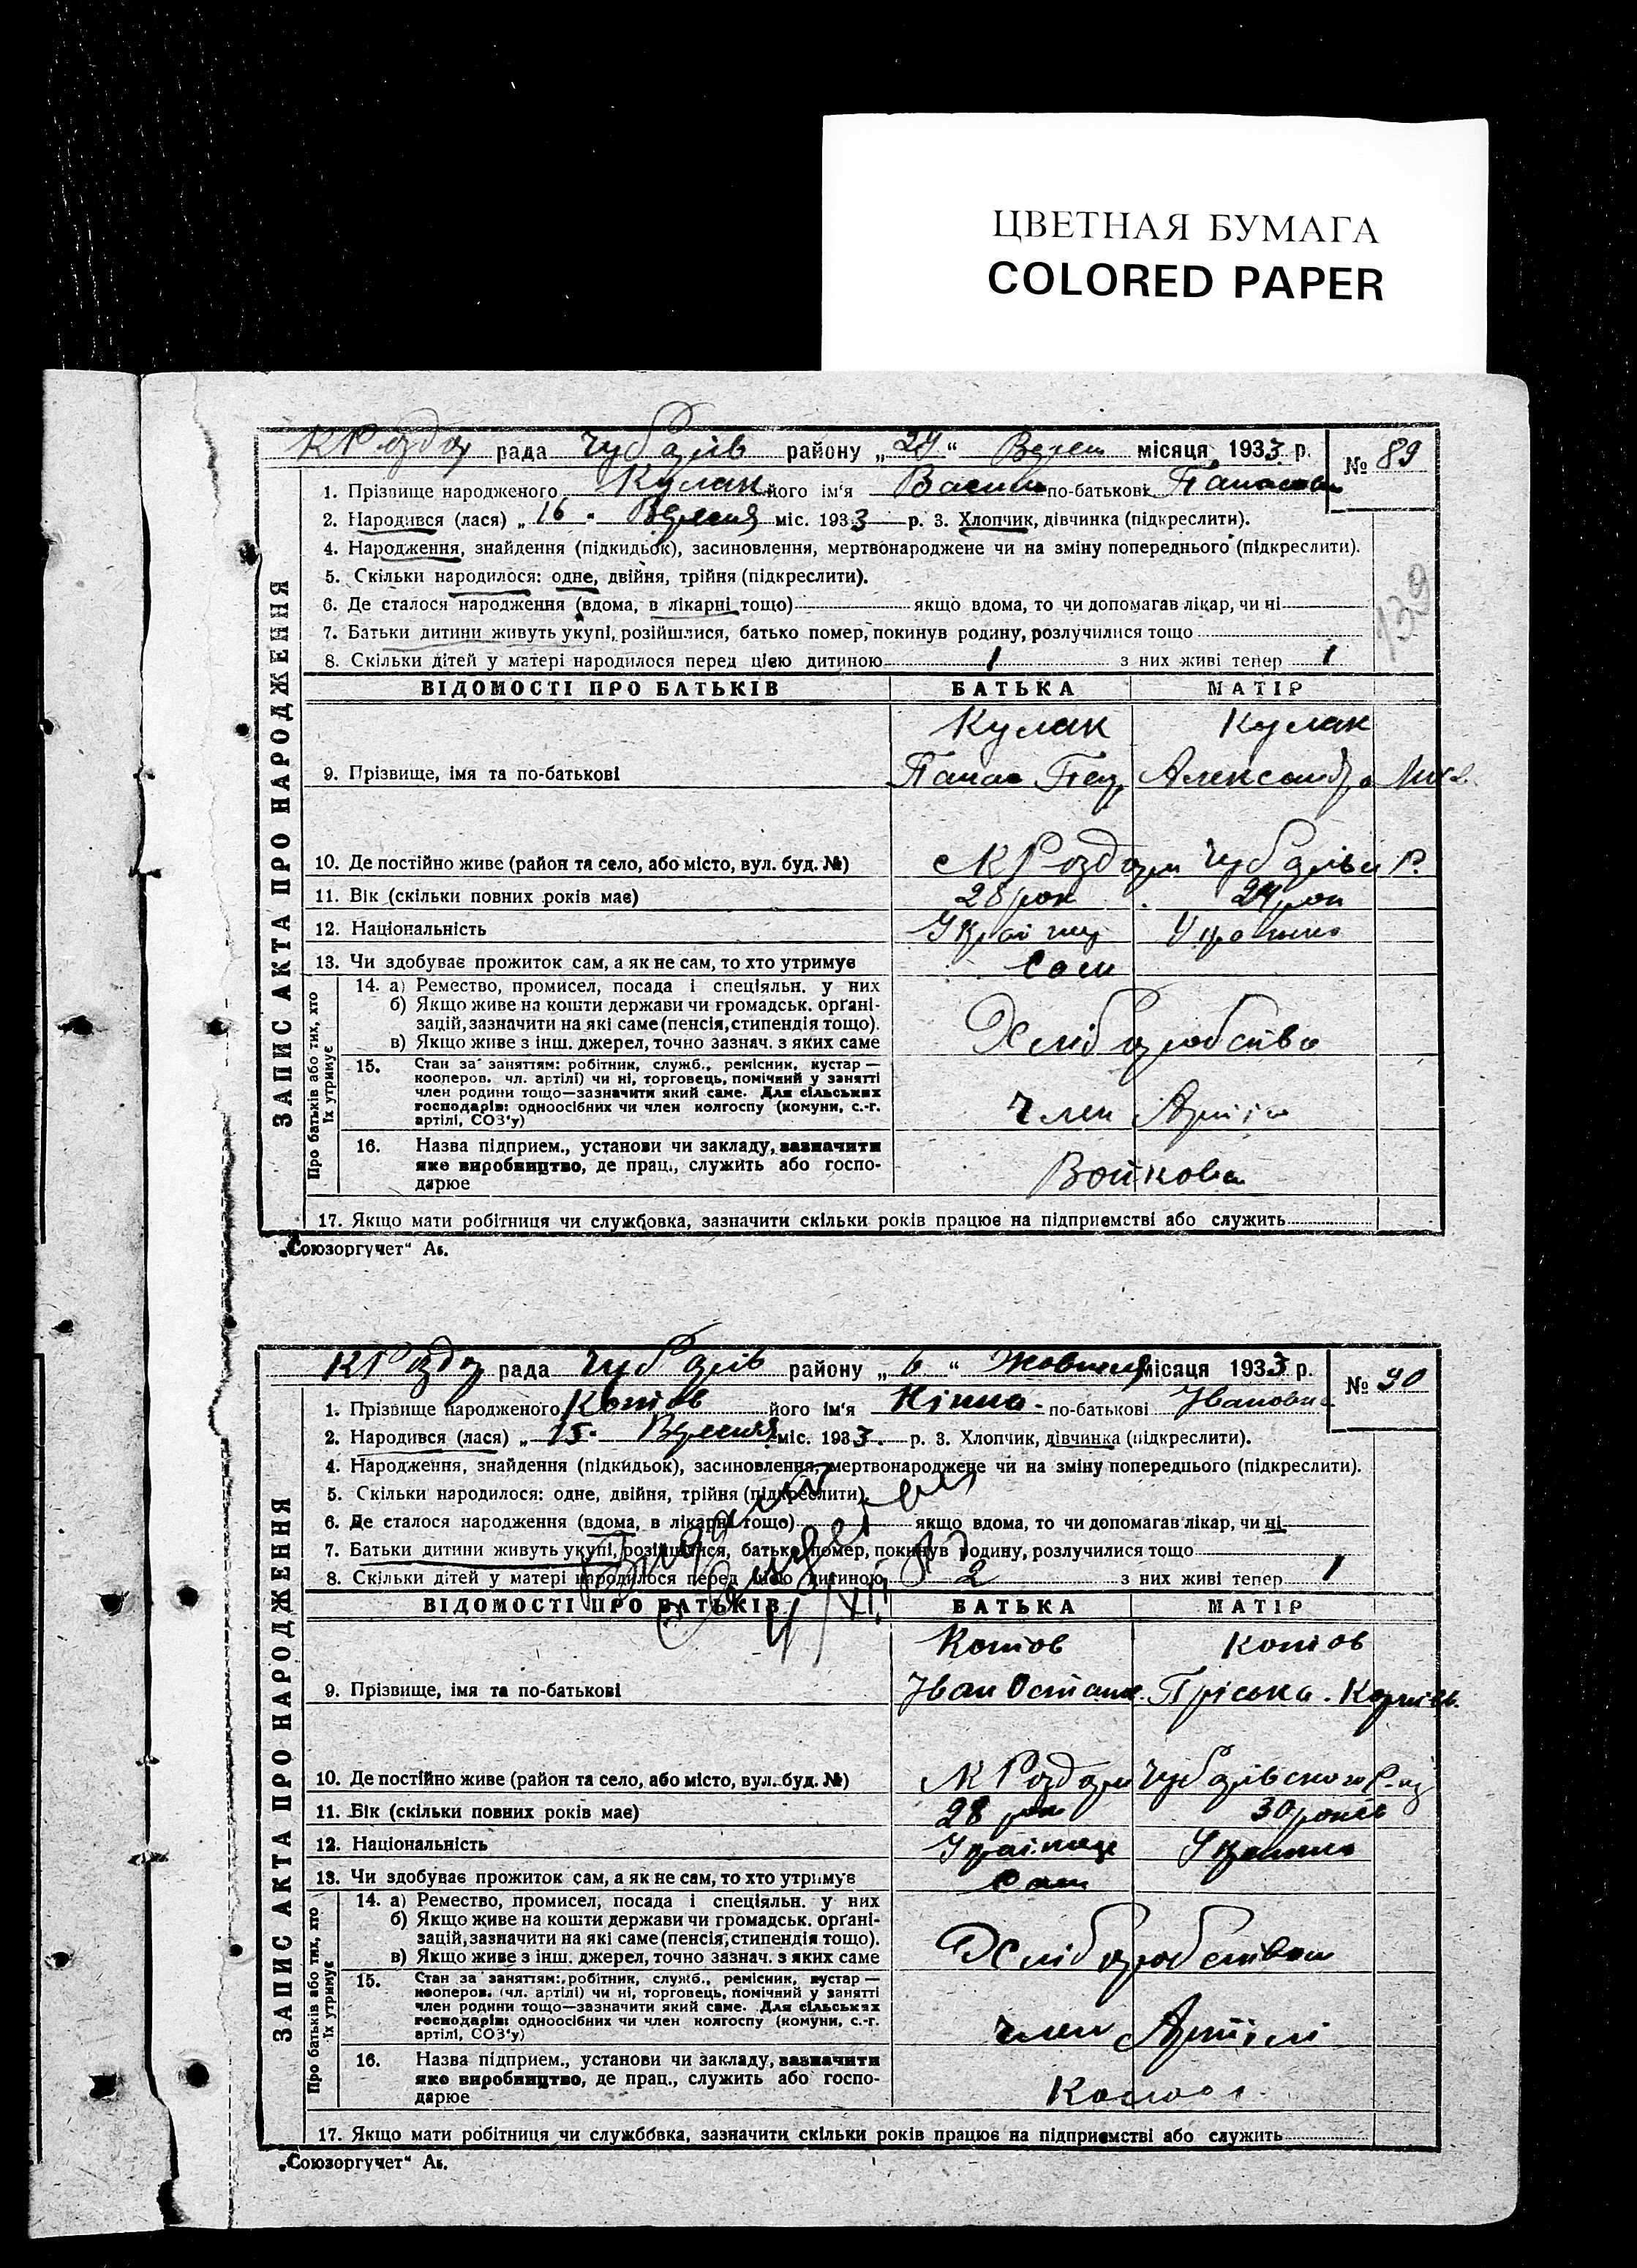 ЦВЕТНАЯ БУМАГА
COLORED PAPER
рада Чуб район „24“ місяця 1933 р.
№ 89
139
1. Прізвище народженого Кулак його ім'я Васил по-батькові
2. Народився (лася) „16“ міс. 1933 р. 3. Хлопчик, дівчинка (підкреслити).
4. Народження, знайдення (підкидьок), засиновлення, мертвонароджене чи на зміну попереднього (підкреслити).
5. Скільки народилося: одне, двійня, трійня (підкреслити).
6. Де сталося народження (вдома, в лікарні тощо) якщо вдома, то чи допомагав лікар, чи ні
7. Батьки дитини живуть укупі, розійшлися, батько помер, покинув родину, розлучилися тощо
8. Скільки дітей у матері народилося перед цією дитиною 1 з них живі тепер 1
ЗАПИС АКТА ПРО НАРОДЖЕННЯ
ВІДОМОСТІ ПРО БАТЬКІВ БАТЬКА МАТІР
Кулак Кулак
9. Прізвище, імя та по-батькові Панас Александра
10. Де постійно живе (район та село, або місто, вул. буд. №)
11. Вік (скільки повних років має) 28 рок 24 рок
12. Національність
13. Чи здобуває прожиток сам, а як не сам, то хто утримує Сам
Про батьків або тих, хто їх утримує
14. а) Ремество, промисел, посада і спеціяльн. у них
б) Якщо живе на кошти держави чи громадськ. орґані-
зацій, зазначити на які саме (пенсія, стипендія тощо).
в) Якщо живе з інш. джерел, точно зазнач. з яких саме
Хліборобство
15. Стан за заняттям: робітник, служб., ремісник, кустар —
кооперов. чл. артілі) чи ні, торговець, помічний у занятті
член родини тощо—зазначити який саме. Для сільських
господарів: одноосібних чи член колгоспу (комуни, с.-г.
артілі, СОЗ'у)
Член
16. Назва підприєм., установи чи закладу, зазначити
яке виробництво, де прац., служить або госпо-
дарює
Войкова
17. Якщо мати робітниця чи службовка, зазначити скільки років працює на підприємстві або служить
„Союзоргучет“ Ак.
рада район „6“ Жовтня місяця 1933 р.
№ 90
1. Прізвище народженого Котов його ім'я Нінна по-батькові Івановна
2. Народився (лася) „15“ міс. 1933 р. 3. Хлопчик, дівчинка (підкреслити).
4. Народження, знайдення (підкидьок), засиновлення, мертвонароджене чи на зміну попереднього (підкреслити).
5. Скільки народилося: одне, двійня, трійня (підкреслити).
6. Де сталося народження (вдома, в лікарні тощо) якщо вдома, то чи допомагав лікар, чи ні
7. Батьки дитини живуть укупі, розійшлися, батько помер, покинув родину, розлучилися тощо
8. Скільки дітей у матері народилося перед цією дитиною 2 з них живі тепер 1
ЗАПИС АКТА ПРО НАРОДЖЕННЯ
ВІДОМОСТІ ПРО БАТЬКІВ БАТЬКА МАТІР
Котов Котов
9. Прізвище, імя та по-батькові Іван Пріська
10. Де постійно живе (район та село, або місто, вул. буд. №)
11. Вік (скільки повних років має) 28 рок 30 років
12. Національність
13. Чи здобуває прожиток сам, а як не сам, то хто утримує Сам
Про батьків або тих, хто їх утримує
14. а) Ремество, промисел, посада і спеціяльн. у них
б) Якщо живе на кошти держави чи громадськ. орґані-
зацій, зазначити на які саме (пенсія, стипендія тощо).
в) Якщо живе з інш. джерел, точно зазнач. з яких саме
Хліборобством
15. Стан за заняттям: робітник, служб., ремісник, кустар —
кооперов. (чл. артілі) чи ні, торговець, помічний у занятті
член родини тощо—зазначити який саме. Для сільських
господарів: одноосібних чи член колгоспу (комуни, с.-г.
артілі, СОЗ'у)
член Артілі
16. Назва підприєм., установи чи закладу, зазначити
яке виробництво, де прац., служить або госпо-
дарює
17. Якщо мати робітниця чи службовка, зазначити скільки років працює на підприємстві або служить
„Союзоргучет“ Ак.